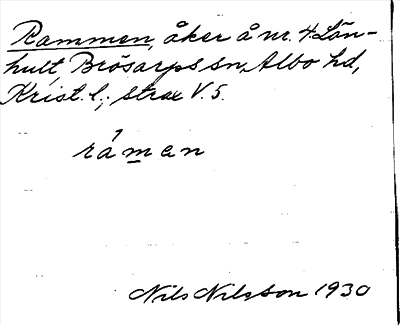 Rammen, åker å nr. 4 Lån-
hult, Brösarps sn, Albo hd,
Krist. l.; strax V. 5.
råmen
Nils Nilsson 1930